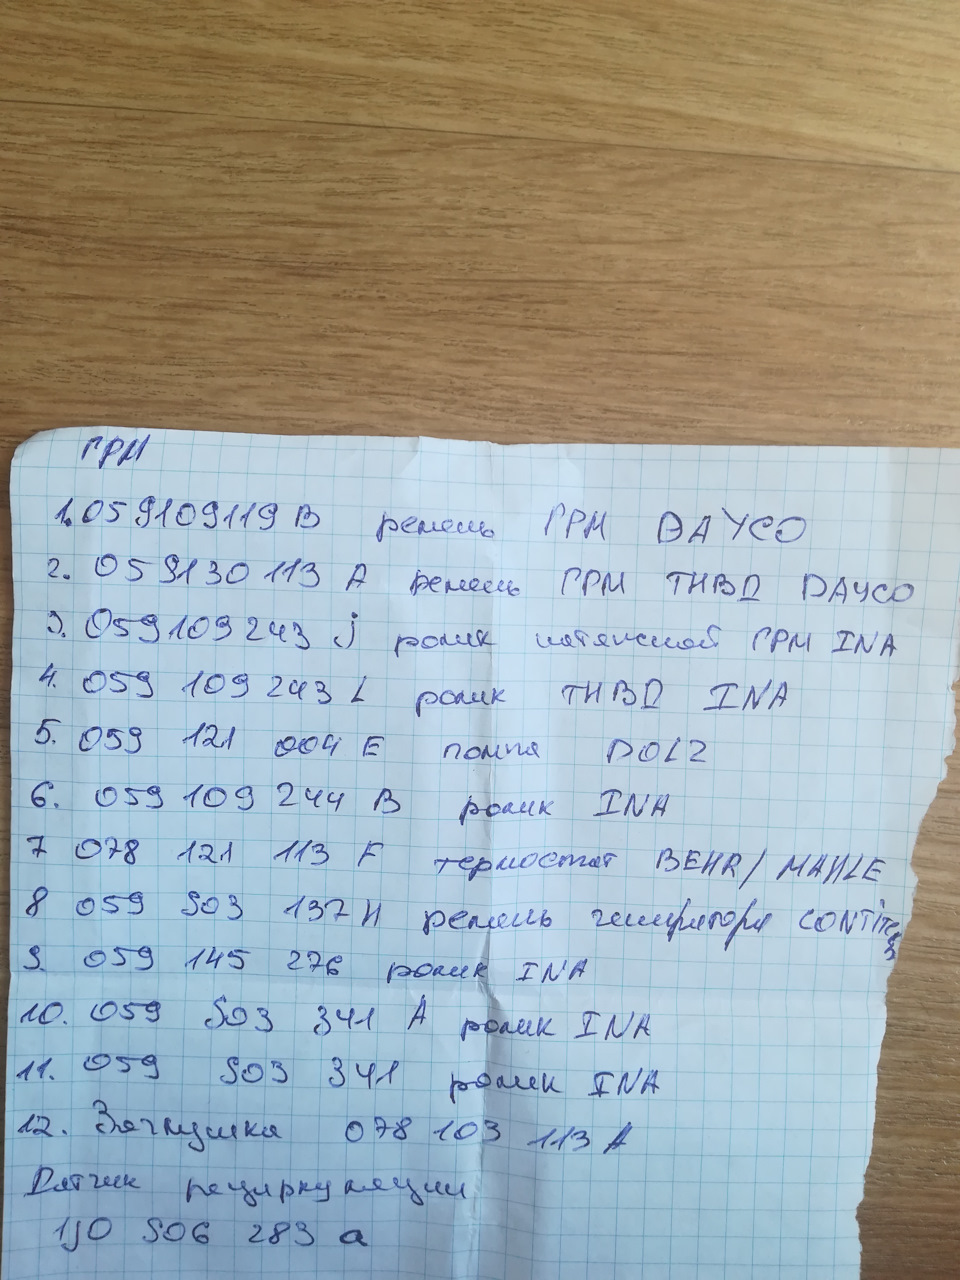 ГРМ
1. 059109119 B ремень ГРМ DAYCO
2. 059130 113 A ремень ГРМ ТНВД DAYCO
3. 059 109 243 j ролик натяжной ГРМ INA
4. 059 109 243 L ролик ТНВД INA
5. 059 121 004 E помпа DOLZ
6. 059 109 244 B ролик INA
7 078 121 113 F термостат BEHR/MAHLE
8 059 903 137 H ремень генератора CONTITech
9. 059 145 276 ролик INA
10. 059 903 341 A ролик INA
11. 059 903 341 ролик INA
12. Заглушка 078 103 113 A
Датчик рециркуляции
1J0 906 283 a